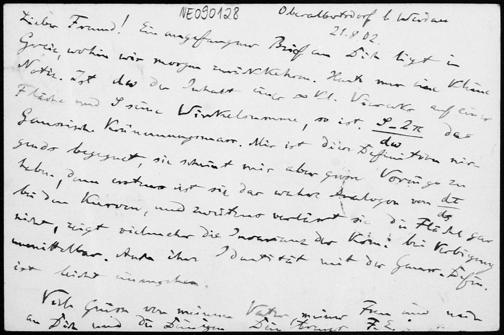 NE090128
Oberalbertsdorf b Werdau
21.8.02
Lieber Freund! Ein angefangener Brief an Dich liegt in
Greiz, wohin wir morgen zurückkehren. Heut nur eine kleine
Notiz. Ist dω der Inhalt eines ∞ kl. Vierecks auf einer
Fläche und S seine Winkelsumme, so ist (S-2π)/dω das
Gaussische Krümmungsmass. Mir ist diese Definition nir-
gends begegnet, sie scheint mir aber grosse Vorzüge zu
haben, denn erstens ist sie das wahre Analogon von dτ/ds
bei den Kurven, und zweitens verlässt sie die Fläche gar
nicht, zeigt vielmehr die Invarianz der Krüm. bei Verbiegung
unmittelbar. Auch ihre Identität mit der Gauss. Defin.
ist leicht einzusehen.
Viele Grüsse von meinem Vater, meiner Frau und mir
an Dich und die Deinigen Dein